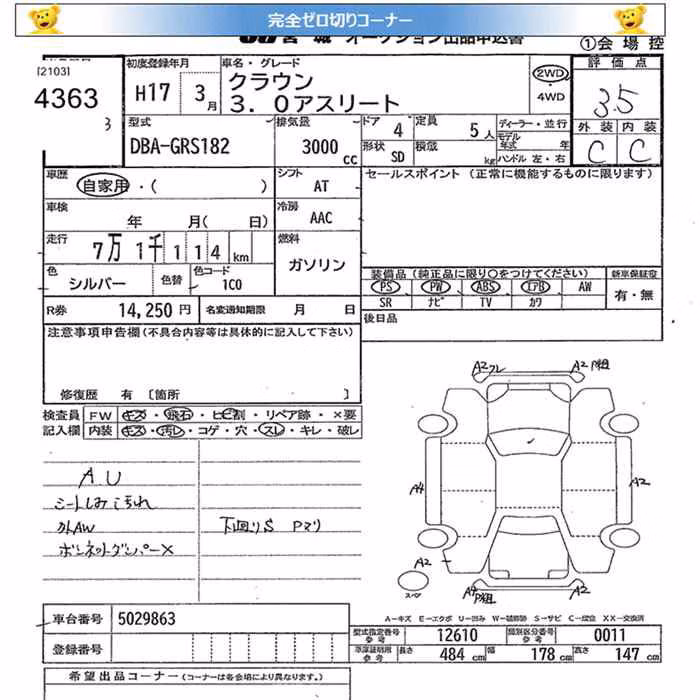 完全ゼロ切りコーナー
JU宮城 オークション出品申込書
①会場控
[2103]
4363
3
初度登録年月
H17 3月
車名・グレード
クラウン
3.0アスリート
2WD
4WD
評価点
3.5
外装 内装
C C
型式
DBA-GRS182
排気量
3000cc
ドア 4
定員 5人
形状 SD
積載 kg
ディーラー・並行
モデル年式 年
ハンドル 左・右
車歴
自家用・( )
シフト
AT
セールスポイント (正常に機能するものに限ります)
車検
年 月( 日)
冷房
AAC
走行
7万1千114km
燃料
ガソリン
色
シルバー
色替
色コード
1C0
装備品(純正品に限り○をつけてください)
新車保証書
PS PW ABS エアB AW
SR ナビ TV カワ
有・無
R券 14,250円
名変通知期限 月 日
後日品
注意事項申告欄(不具合内容等は具体的に記入して下さい)
修復歴 有 [箇所 ]
検査員 FW キズ・飛石・ヒビ割・リペア跡・×要
記入欄 内装 キズ・汚レ・コゲ・穴・スレ・キレ・破レ
A.U
シートしみ こちれ
外AW
ボンネットダンパー×
下回りS Pマリ
A2フレ
A2 P組
A4
A2
A2
A4 P組
A2
スペア
A-キズ E-エクボ U-凹み W-補修跡 S-サビ C-腐蝕 XX-交換済
車台番号 5029863
登録番号
型式指定番号参考 12610
類別区分番号参考 0011
車庫証明用参考 長さ 484cm 幅 178cm 高さ 147cm
希望出品コーナー (コーナーは各会場により異なります。)